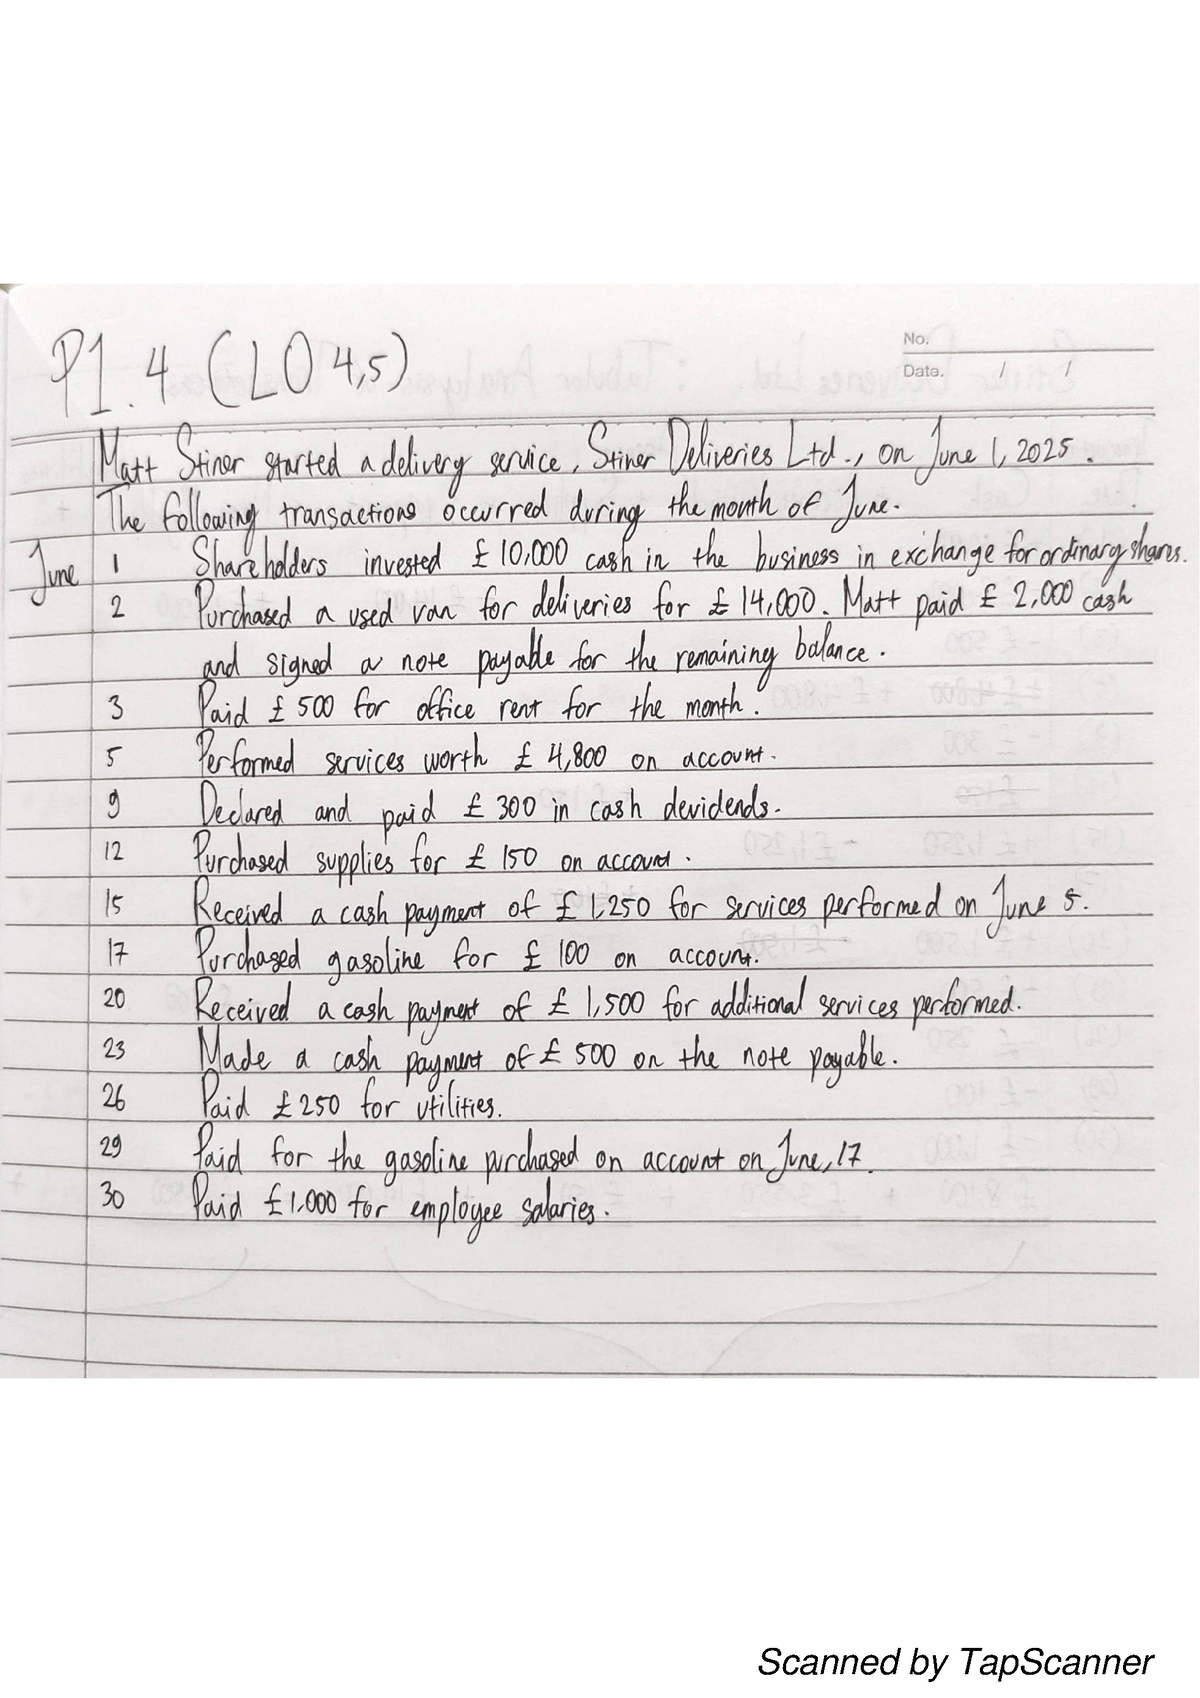 P1.4 (LO 4,5)
No.
Date. / /
Matt Stiner started a delivery service, Stiner Deliveries Ltd., on June 1, 2025.
The following transactions occurred during the month of June.
June 1 Shareholders invested £ 10,000 cash in the business in exchange for ordinary shares.
2 Purchased a used van for deliveries for £ 14,000. Matt paid £ 2,000 cash
and signed a note payable for the remaining balance.
3 Paid £ 500 for office rent for the month.
5 Performed services worth £ 4,800 on account.
9 Declared and paid £ 300 in cash devidends.
12 Purchased supplies for £ 150 on account.
15 Received a cash payment of £ 1,250 for services performed on June 5.
17 Purchased gasoline for £ 100 on account.
20 Received a cash payment of £ 1,500 for additional services performed.
23 Made a cash payment of £ 500 on the note payable.
26 Paid £ 250 for utilities.
29 Paid for the gasoline purchased on account on June, 17.
30 Paid £ 1,000 for employee salaries.
Scanned by TapScanner